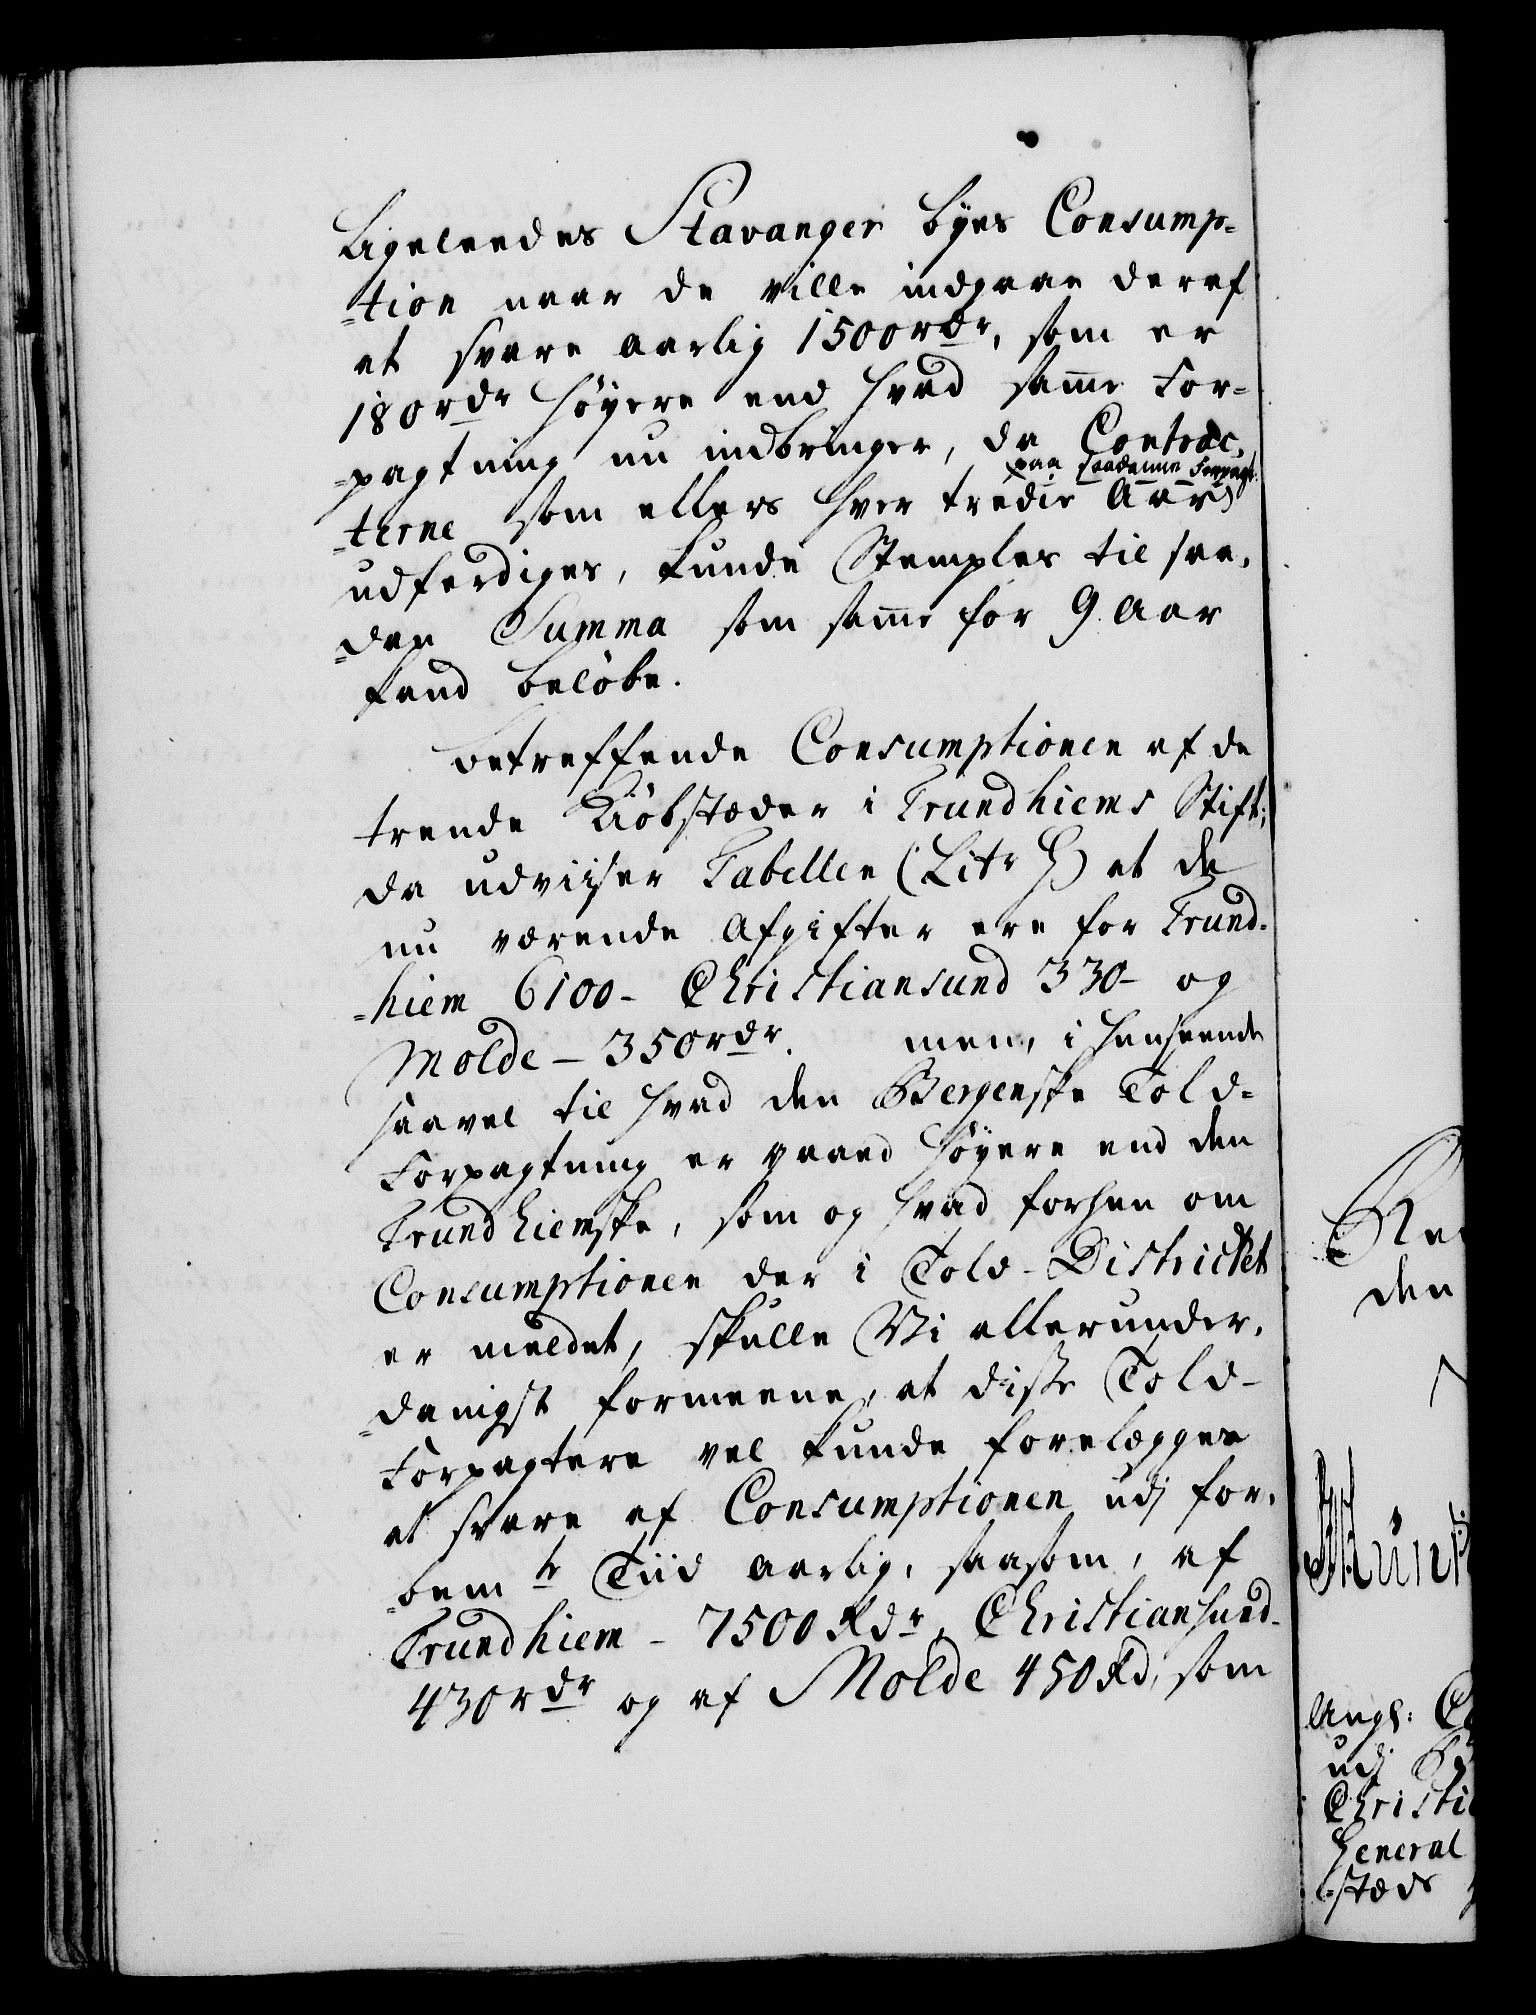 Ligeleedes Stavanger Byes Consump-
-tion naar de ville indgaae deraf
at svare aarlig 1500 rdr, som er
180 rdr høyere end hvad samme For-
-pagtning nu indbringer, da Contrac-
paa saadanne Forpagt:
-terne som ellers hver tredie Aar
udferdiges, kunde Stemples til saa-
-dan Summa som samme for 9 Aar
kand beløbe.
Betreffende Consumptionen af de
trende Kiøbstæder i Trundhiems Stift,
da udviiser Tabellen (Litr H) at de
nu værende Afgifter ere for Trund-
-hiem 6100 - Christiansund 330 - og
Molde - 350 rdr. men, i henseende
saavel til hvad den Bergenske Told-
Forpagtning er gaaed høyere end den
Trundhiemske, som og hvad forhen om
Consumptionen der i Told-Districtet
er meldet, skulle Vi allerunder-
-danigst formeene, at disse Told-
Forpagtere vel kunde forelægges
at svare af Consumptionen udj for-
-bem te Tiid aarlig, saasom, af
Trundhiem - 7500 Rdr, Christiansund -
430 rdr og af Molde 450 Rd, som
den
Ungl:
udj
Christi
General
-stæds